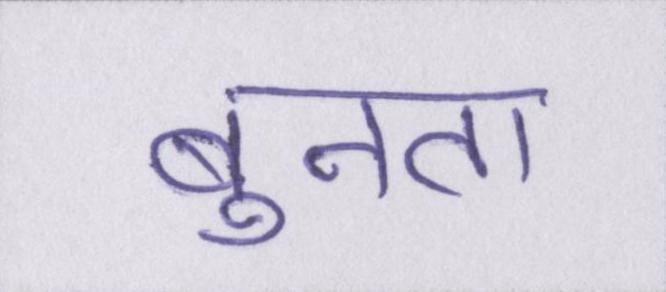 बुनता